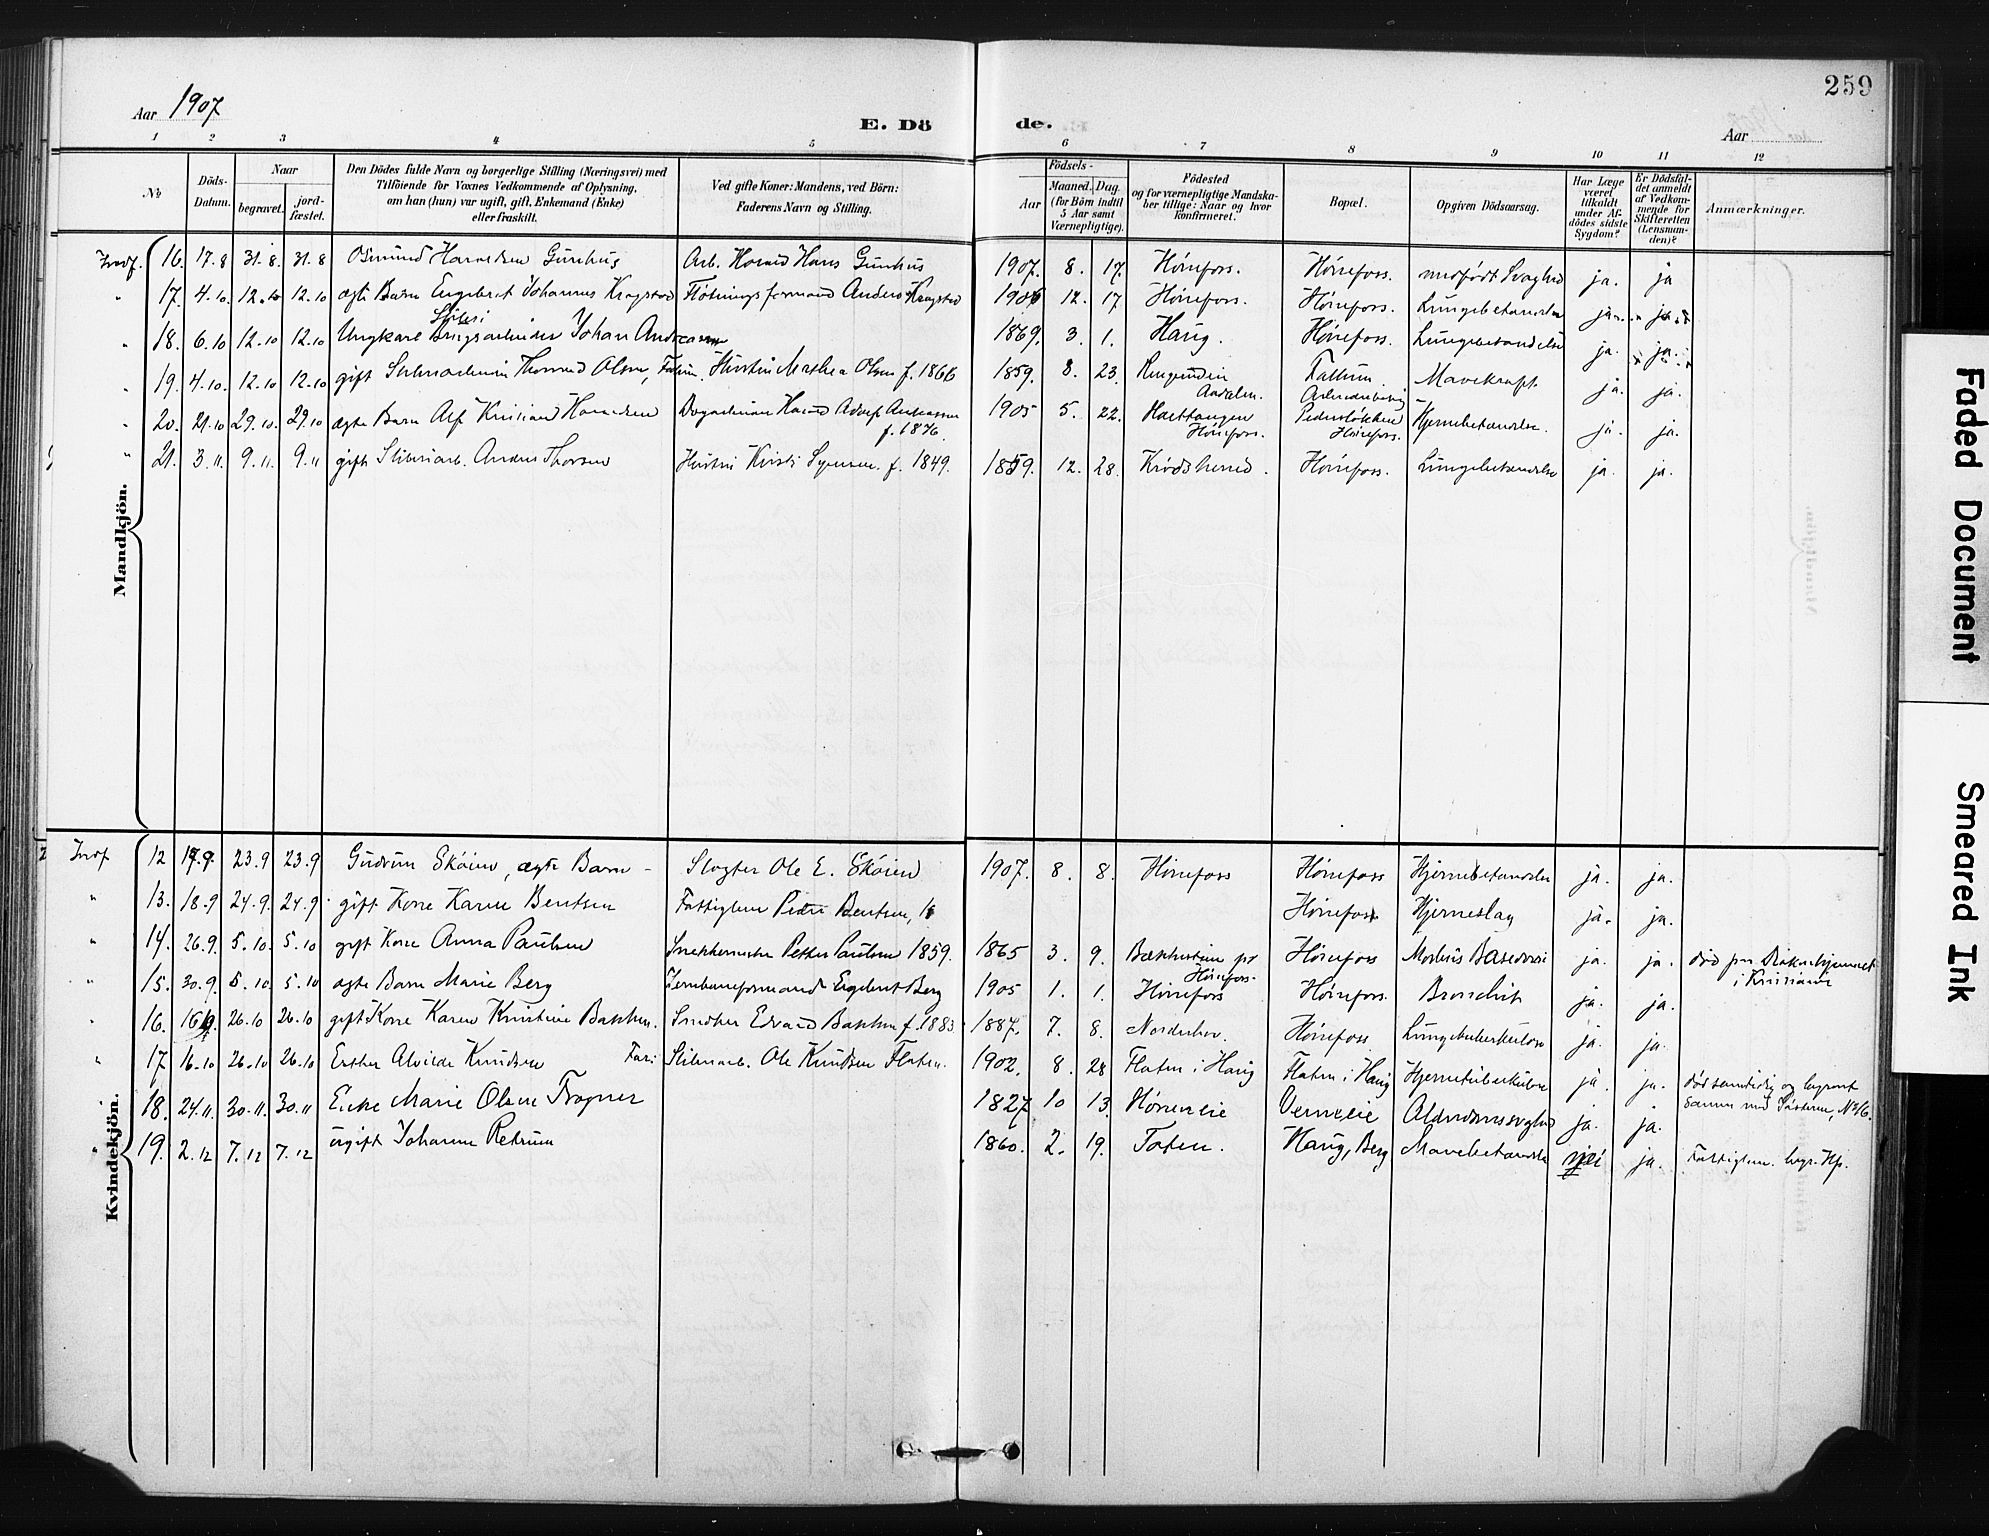 259
Aar 1907
E. Dö de.
Aar
1 2 3 4 5 6 7 8 9 10 11 12
No
Döds-Datum.
Naar
begravet.
jord-fæstet.
Den Dödes fulde Navn og borgerlige Stilling (Næringsvei) med
Tilföiende for Voxnes Vedkommende af Oplysning,
om han (hun) var ugift, gift, Enkemand (Enke)
eller fraskilt.
Ved gifte Koner: Mandens, ved Börn:
Faderens Navn og Stilling.
Födsels-
Aar
Maaned. Dag.
(for Börn indtil
5 Aar samt
Værnepligtige).
Födested
og for værnepligtige Mandska-
ber tillige: Naar og hvor
konfirmeret.
Bopæl.
Opgiven Dödsaarsag.
Har Læge
været
tilkaldt
under Af-
dödes sidste
Sygdom?
Er Dödsfal-
det anmeldt
af Vedkom-
mende for
Skifteretten
(Lensman-
den)?
Anmærkninger.
Mandkjön.
Indf. 16. 17.8 31.8. 31.8 Osmund Haraldsen Gunhus Arb. Harald Hans Gunhus 1907. 8. 17. Hønefoss. Hønefoss. medfødt Svaghed ja. ja
" 17. 4.10. 12.10 12.10 ægte Barn Engebret Johannes Kragstad Fløtningsformand Anders Kragstad 1906 12. 17. Hønefoss. Hønefoss. Lungebetændelse ja. ja.
Sliberi
" 18. 6.10 12.10 12.10 Ungkarl Johan Andreassen 1869. 3. 1. Haug. Hønefoss. Lungebetændelse ja. ja.
" 19. 4.10. 12.10 12.10 gift Thorvald Olsen, Hustru Mathea Olsen f. 1866 1859. 8. 23. Aadalen. Follum Mavekræft ja. ja.
" 20. 21.10 29.10. 29.10 ægte Barn Alf Kristian Haraldsen Harald Adolf Andreassen f. 1876. 1905 5. 22. Hønefoss. Pedersløkken Hønefoss. Hjernebetændelse. ja. ja.
" 21. 3.11. 9.11. 9.11 gift Sliberiarb. Anders Thorsen Hustru Kirsti Syversen f. 1849. 1859. 12. 28. Krødsherred. Hønefoss. Lungebetændelse ja. ja.
Kvindekjön.
Indf 12 17.9. 23.9 23.9 Gudrun Skøien, ægte Barn - Slagter Ole E. Skøien 1907. 8. 8. Hønefoss Hønefoss Hjernebetændelse ja. ja.
" 13. 18.9 24.9. 24.9. gift Kone Karen Bentsen Fattiglem Peder Bentsen, Hønefoss Hjerneslag ja. ja.
" 14. 26.9. 5.10. 5.10 gift Kone Anna Paulsen Snekkermester Petter Paulsen 1859. 1865 3. 9. Hønefoss. Hønefoss Morbus Basedowi ja. ja. død paa Rikshospitalet i Kristiania
" 15. 30.9. 5.10. 5.10 ægte Barn Marie Berg Jernbaneformand Engebret Berg 1905 1. 1. Hønefoss Hønefoss. Bronchit ja. ja.
" 16. 16. 26.10 26.10 gift Kone Karen Kristine Bakken. Edvard Bakken f. 1883 1887. 7. 8. Norderhov. Hønefoss. Lungetuberkulose ja. ja.
" 17 16.10 26.10 26.10 Esther Alvilde Knudsen Far: Sliberiarb. Ole Knudsen Flaten. 1902. 8. 28 Flaten i Haug Flaten i Haug Hjernetuberkulose ja. ja. død samtidig og begravet sammen med Søsteren, No 16.
" 18. 24.11. 30.11. 30.11 Enke Marie Olsen Trogner 1827 10 13. Høneneie Verneeie Alderdomssvaghed ja. ja.
" 19. 2.12 7.12 7.12 ugift Johanne Retrum 1860. 2. 19. Toten. Haug, Berg Mavebetændelse nei ja. Fattiglem. begr. Hf.
Faded Document
Smeared Ink